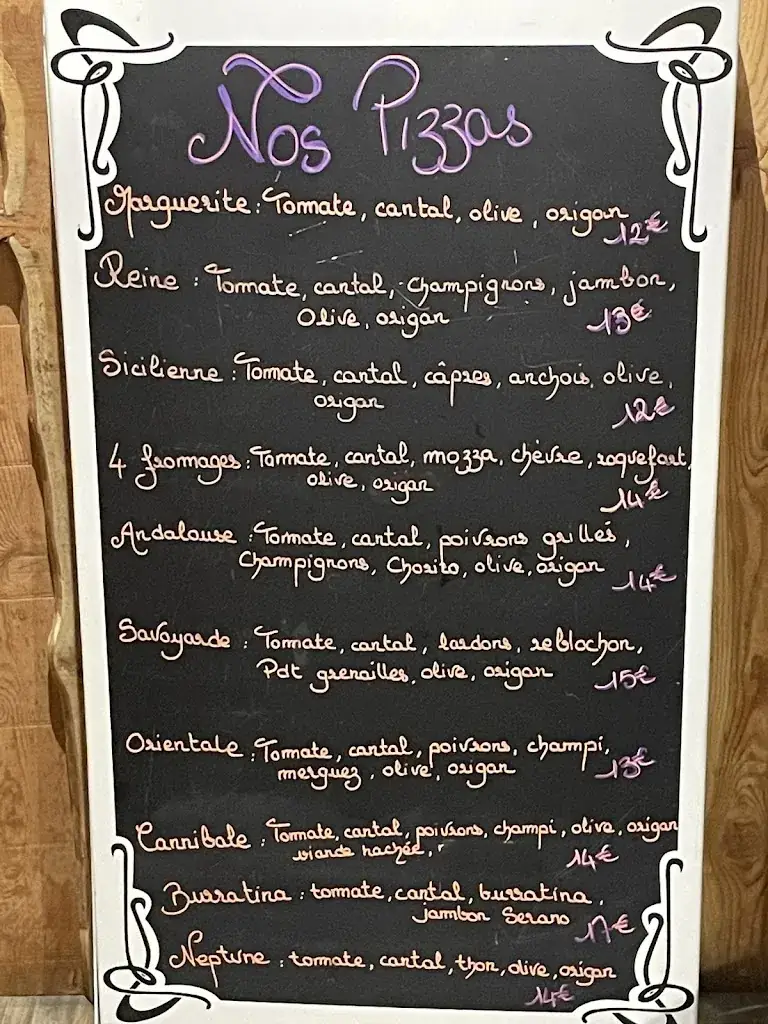 Nos Pizzas
Marguerite : Tomate, cantal, olive, origan
12€
Reine : Tomate, cantal, champignons, jambon,
Olive, origan
13€
Sicilienne : Tomate, cantal, câpres, anchois, olive,
origan
12€
4 fromages : Tomate, cantal, mozza, chèvre, roquefort,
olive, origan
14€
Andalouse : Tomate, cantal, poivrons grillés,
Champignons, Chorizo, olive, origan
14€
Savoyarde : Tomate, cantal, lardons, reblochon,
Pdt grenailles, olive, origan
15€
Orientale : Tomate, cantal, poivrons, champi,
merguez, olive, origan
13€
Cannibale : Tomate, cantal, poivrons, champi, olive, origan
viande hachée,
14€
Burratina : tomate, cantal, burratina,
jambon Serano
17€
Neptune : tomate, cantal, thon, olive, origan
14€